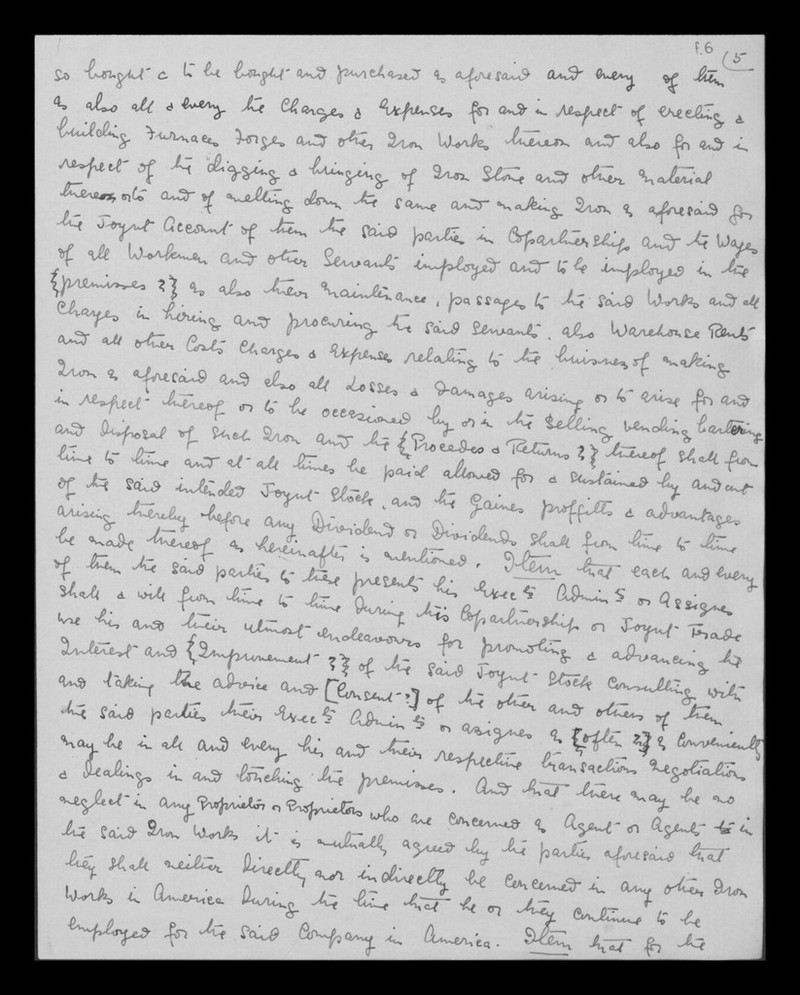 f.6 (5
so bought & to be bought and purchased as aforesaid and every of them
as also all & every the Charges & Expenses for and in respect of erecting &
building Furnaces Forges and other Iron Works thereon and also for and in
respect of the digging & bringing of Iron Stone and other material
thereonto and of melting down the same and making Iron as aforesaid for
the Joynt Account of them the said parties in Copartnership and the Wages
of all Workmen and other Servants imployed and to be imployed in the
{premisses ?} as also their maintenance, passages to the said Works and all
Charges in hiring and procuring the said Servants. also Warehouse Rents
and all other Costs Charges & Expenses relating to the buisness of making
Iron as aforesaid and also all Losses & Damages arising or to arise for and
in respect thereof or to be occasioned by or in the Selling vending bartering
and disposal of such Iron and the {Procedes & Returns ?} thereof shall from
time to time and at all times be paid allowed for & sustained by and out
of the said intended Joynt Stock, and the Gaines proffitts & advantages
arising thereby before any Dividend or Dividends shall from time to time
be made thereof as hereinafter is mentioned. Item that each and every
of them the said parties to these presents his Execrs Adminrs or Assignes
shall & will from time to time during this Copartnership or Joynt Trade
use his and their utmost endeavours for promoting & advancing the
Interest and {Improvement ?} of the said Joynt Stock Consulting with
and taking the advice and [Consent ?] of the other and others of them
the said parties their Execrs Adminrs or assignes as [often ?] as Conveniently
may be in all and every his and their respective transactions negotiations
& dealings in and touching the premisses. And that there may be no
neglect in any Proprietor or Proprietors who are concerned as Agent or Agents in
the said Iron Works it is mutually agreed by the parties aforesaid that
they shall neither directly nor indirectly be concerned in any other Iron
Works in America during the time that he or they continue to be
employed for the said Company in America. Item that for the